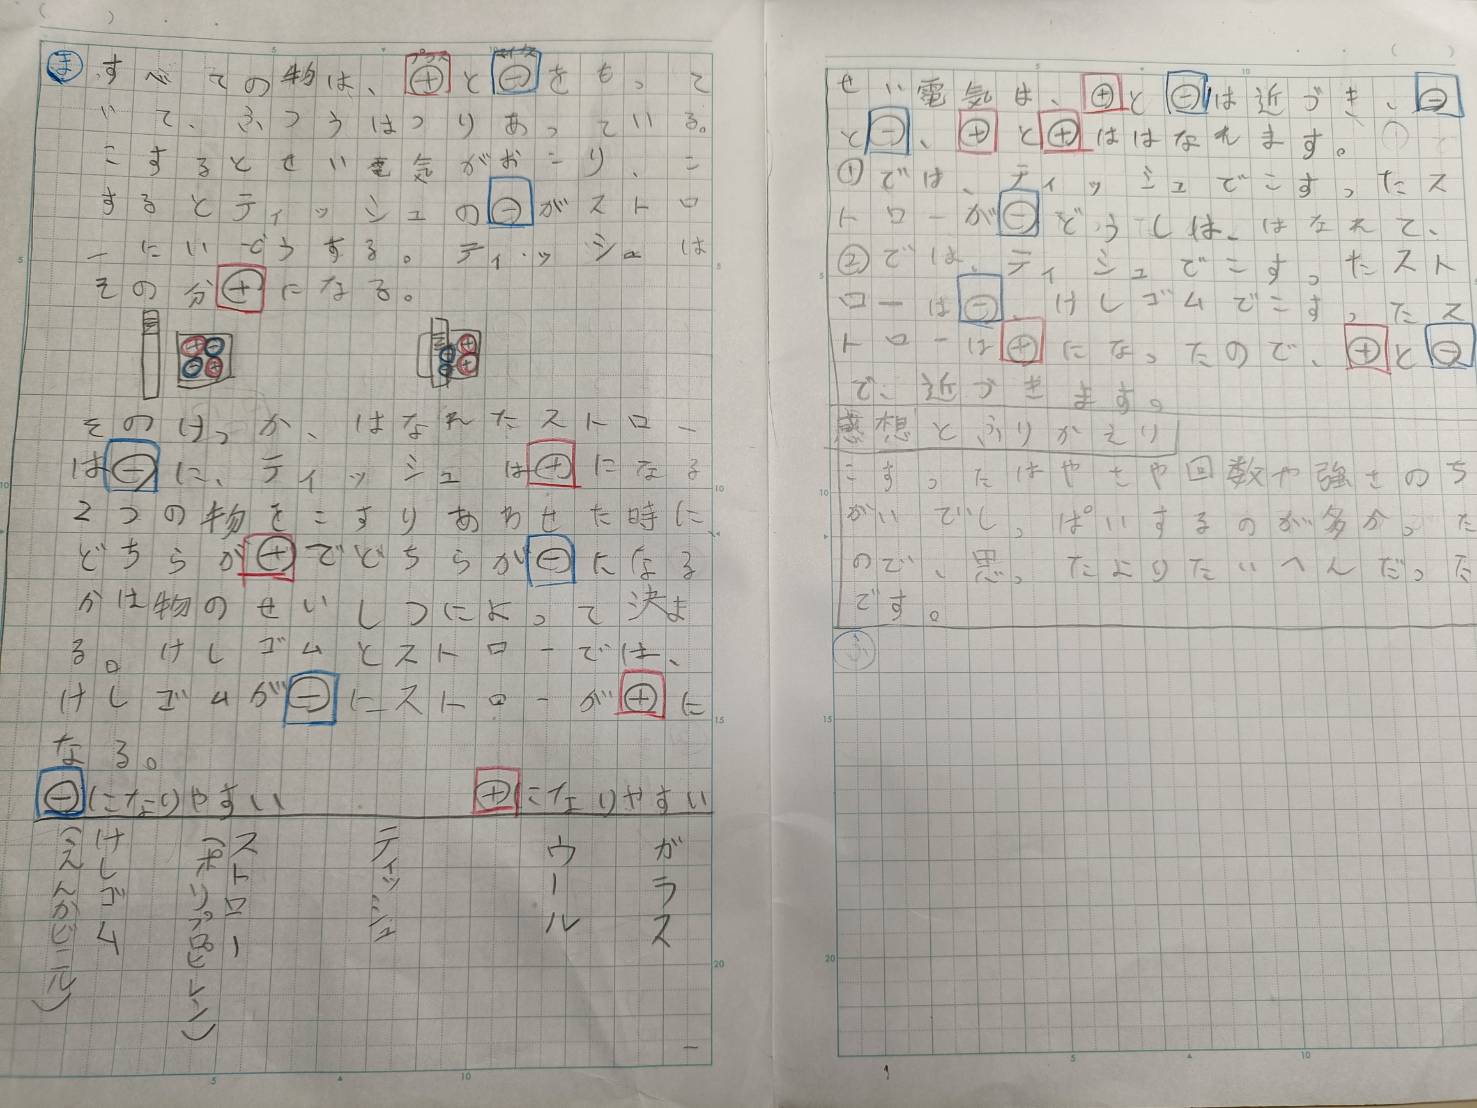 ま すべての物は、⊕と⊖をもって
いて、ふつうはつりあっている。
こするとせい電気がおこり、こ
するとティッシュの⊖がストロ
ーにいどうする。ティッシュは
その分⊕になる。
そのけっか、はなれたストロー
は⊖に、ティッシュは⊕になる
2つの物をこすりあわせた時に
どちらが⊕でどちらが⊖になる
かは物のせいしつによって決ま
る。けしゴムとストローでは、
けしゴムが⊖にストローが⊕に
なる。
⊖になりやすい ⊕になりやすい
けしゴム
(えんかビニル)
ストロー
(ポリプロピレン)
ティッシュ
ウール
ガラス
せい電気は、⊕と⊖は近づき、⊖
と⊖、⊕と⊕ははなれます。
①では、ティッシュでこすったス
トローが⊖どうしは、はなれて、
②では、ティシュでこすったスト
ローは⊖、けしゴムでこすったス
トローは⊕になったので、⊕と⊖
で近づきます。
感想とふりかえり
こすったはやさや回数や強さのち
がいでしっぱいするのが多かった
ので、思ったよりたいへんだった
です。